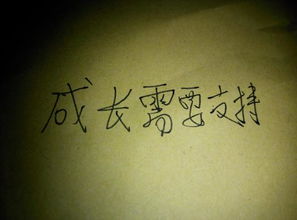 成长需要支持